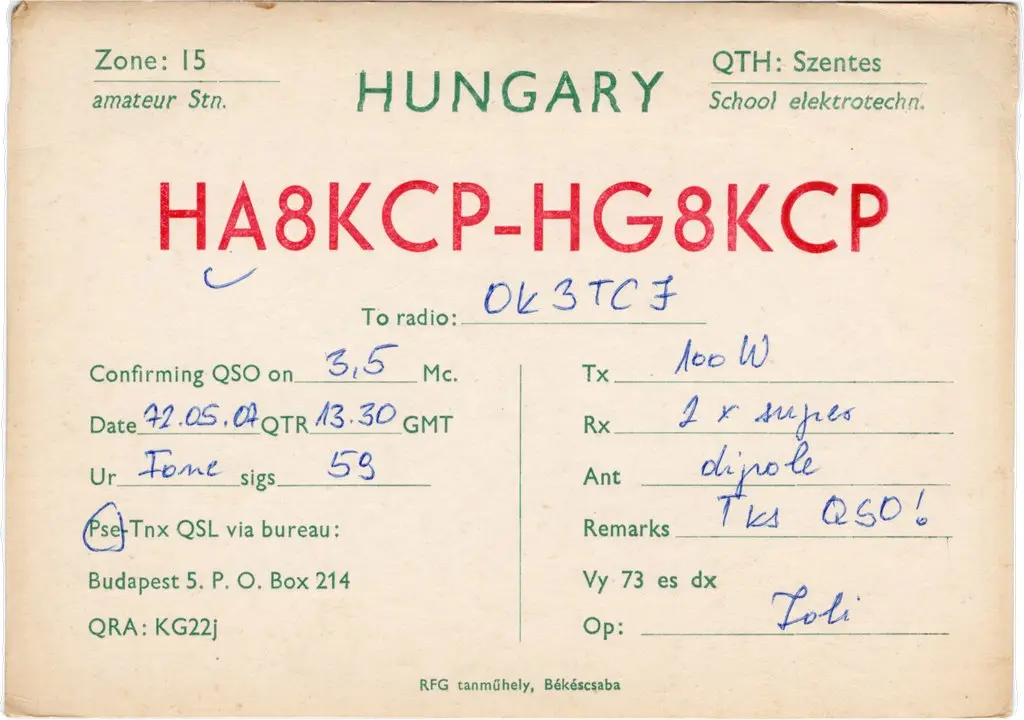 Zone: 15
amateur Stn.
HUNGARY
QTH: Szentes
School elektrotechn.
HA8KCP-HG8KCP
To radio: OK3TCJ
Confirming QSO on 3,5 Mc.
Date 72.05.07 QTR 13.30 GMT
Ur Fone sigs 59
Pse-Tnx QSL via bureau:
Budapest 5. P. O. Box 214
QRA: KG22j
Tx 100 W
Rx 2 x super
Ant dipole
Remarks Tks QSO!
Vy 73 es dx
Op: Joli
RFG tanműhely, Békéscsaba